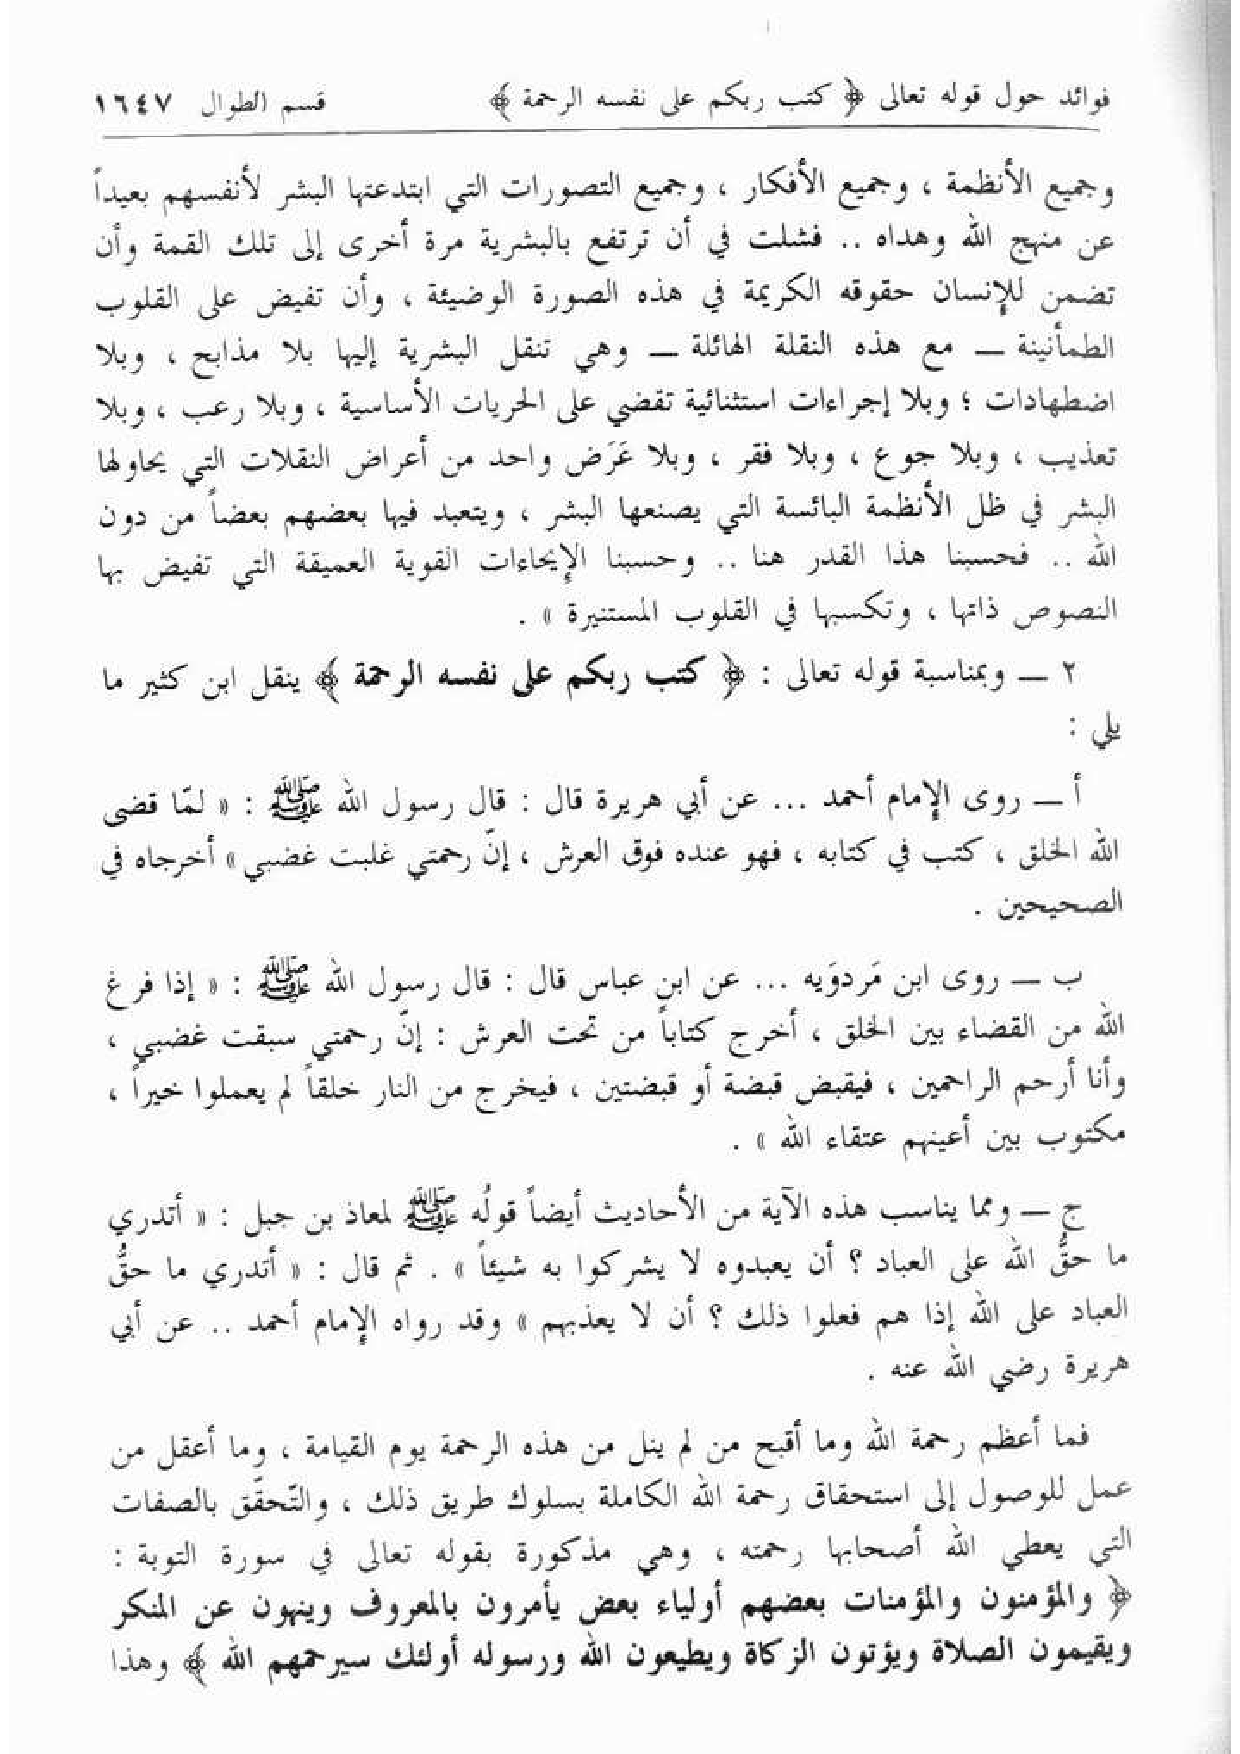 فوائد حول قوله تعالى ﴿ كتب ربكم على نفسه الرحمة ﴾ قسم الطوال ١٦٤٧
وجميع الأنظمة ، وجميع الأفكار ، وجميع التصورات التي ابتدعتها البشر لأنفسهم بعيداً
عن منهج الله وهداه .. فشلت في أن ترتفع بالبشرية مرة أخرى إلى تلك القمة وأن
تضمن للإنسان حقوقه الكريمة في هذه الصورة الوضيئة ، وأن تفيض على القلوب
الطمأنينة ــ مع هذه النقلة الهائلة ــ وهي تنقل البشرية إليها بلا مذابح ، وبلا
اضطهادات ؛ وبلا إجراءات استثنائية تقضي على الحريات الأساسية ، وبلا رعب ، وبلا
تعذيب ، وبلا جوع ، وبلا فقر ، وبلا عَرَض واحد من أعراض النقلات التي يحاولها
البشر في ظل الأنظمة البائسة التي يصنعها البشر ، ويتعبد فيها بعضهم بعضاً من دون
الله .. فحسبنا هذا القدر هنا .. وحسبنا الإيحاءات القوية العميقة التي تفيض بها
النصوص ذاتها ، وتكسبها في القلوب المستنيرة » .
٢ ــ وبمناسبة قوله تعالى : ﴿ كتب ربكم على نفسه الرحمة ﴾ ينقل ابن كثير ما
يلي :
أ ــ روى الإمام أحمد ... عن أبي هريرة قال : قال رسول الله ﷺ : « لمّا قضى
الله الخلق ، كتب في كتابه ، فهو عنده فوق العرش ، إنّ رحمتي غلبت غضبي » أخرجاه في
الصحيحين .
ب ــ روى ابن مَردوَيه ... عن ابن عباس قال : قال رسول الله ﷺ : « إذا فرغ
الله من القضاء بين الخلق ، أخرج كتاباً من تحت العرش : إنّ رحمتي سبقت غضبي ،
وأنا أرحم الراحمين ، فيقبض قبضة أو قبضتين ، فيخرج من النار خلقاً لم يعملوا خيراً ،
مكتوب بين أعينهم عتقاء الله » .
ج ــ ومما يناسب هذه الآية من الأحاديث أيضاً قولُه ﷺ لمعاذ بن جبل : « أتدري
ما حقُّ الله على العباد ؟ أن يعبدوه لا يشركوا به شيئاً » . ثم قال : « أتدري ما حقُّ
العباد على الله إذا هم فعلوا ذلك ؟ أن لا يعذبهم » وقد رواه الإمام أحمد .. عن أبي
هريرة رضي الله عنه .
فما أعظم رحمة الله وما أقبح من لم ينل من هذه الرحمة يوم القيامة ، وما أعقل من
عمل للوصول إلى استحقاق رحمة الله الكاملة بسلوك طريق ذلك ، والتّحقّق بالصفات
التي يعطي الله أصحابها رحمته ، وهي مذكورة بقوله تعالى في سورة التوبة :
﴿ والمؤمنون والمؤمنات بعضهم أولياء بعض يأمرون بالمعروف وينهون عن المنكر
ويقيمون الصلاة ويؤتون الزكاة ويطيعون الله ورسوله أولئك سيرحمهم الله ﴾ وهذا